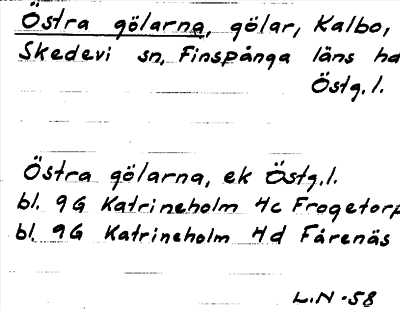 Östra gölarna, gölar, Kalbo,
Skedevi sn, Finspånga läns hd
Östg.l.
Östra gölarna, ek Östg.l.
bl. 9G Katrineholm 4c Frogetorp
bl. 9G Katrineholm 4d Fårenäs
L.N -58